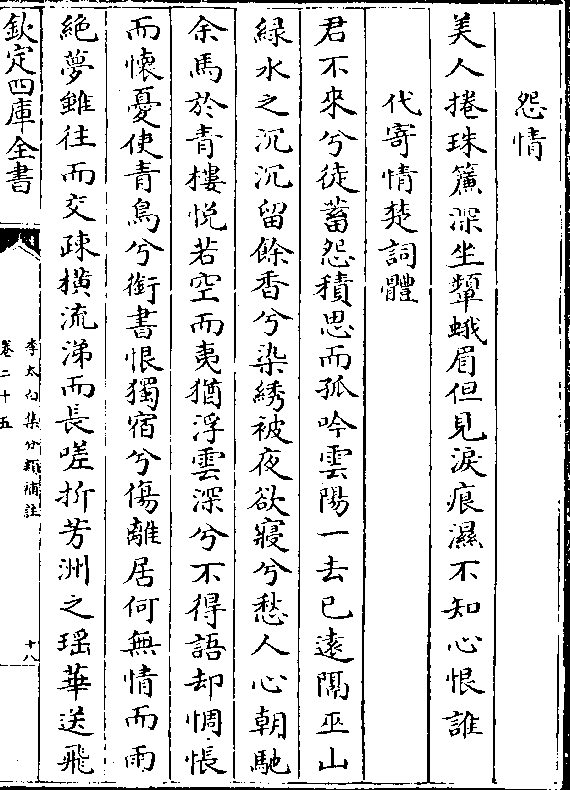 怨情
美人捲珠簾深坐顰蛾眉但見淚痕濕不知心恨誰
代寄情楚詞體
君不來兮徒蓄怨積思而孤吟雲陽一去已遠隔巫山
緑水之沉沉留餘香兮染綉被夜欲寢兮愁人心朝馳
余馬於青樓怳若空而夷猶浮雲深兮不得語却惆悵
而懷憂使青鳥兮銜書恨獨宿兮傷離居何無情而雨
絶夢雖往而交疎横流涕而長嗟折芳洲之瑶華送飛
欽定四庫全書
李太白集分類補註
卷二十五
十八